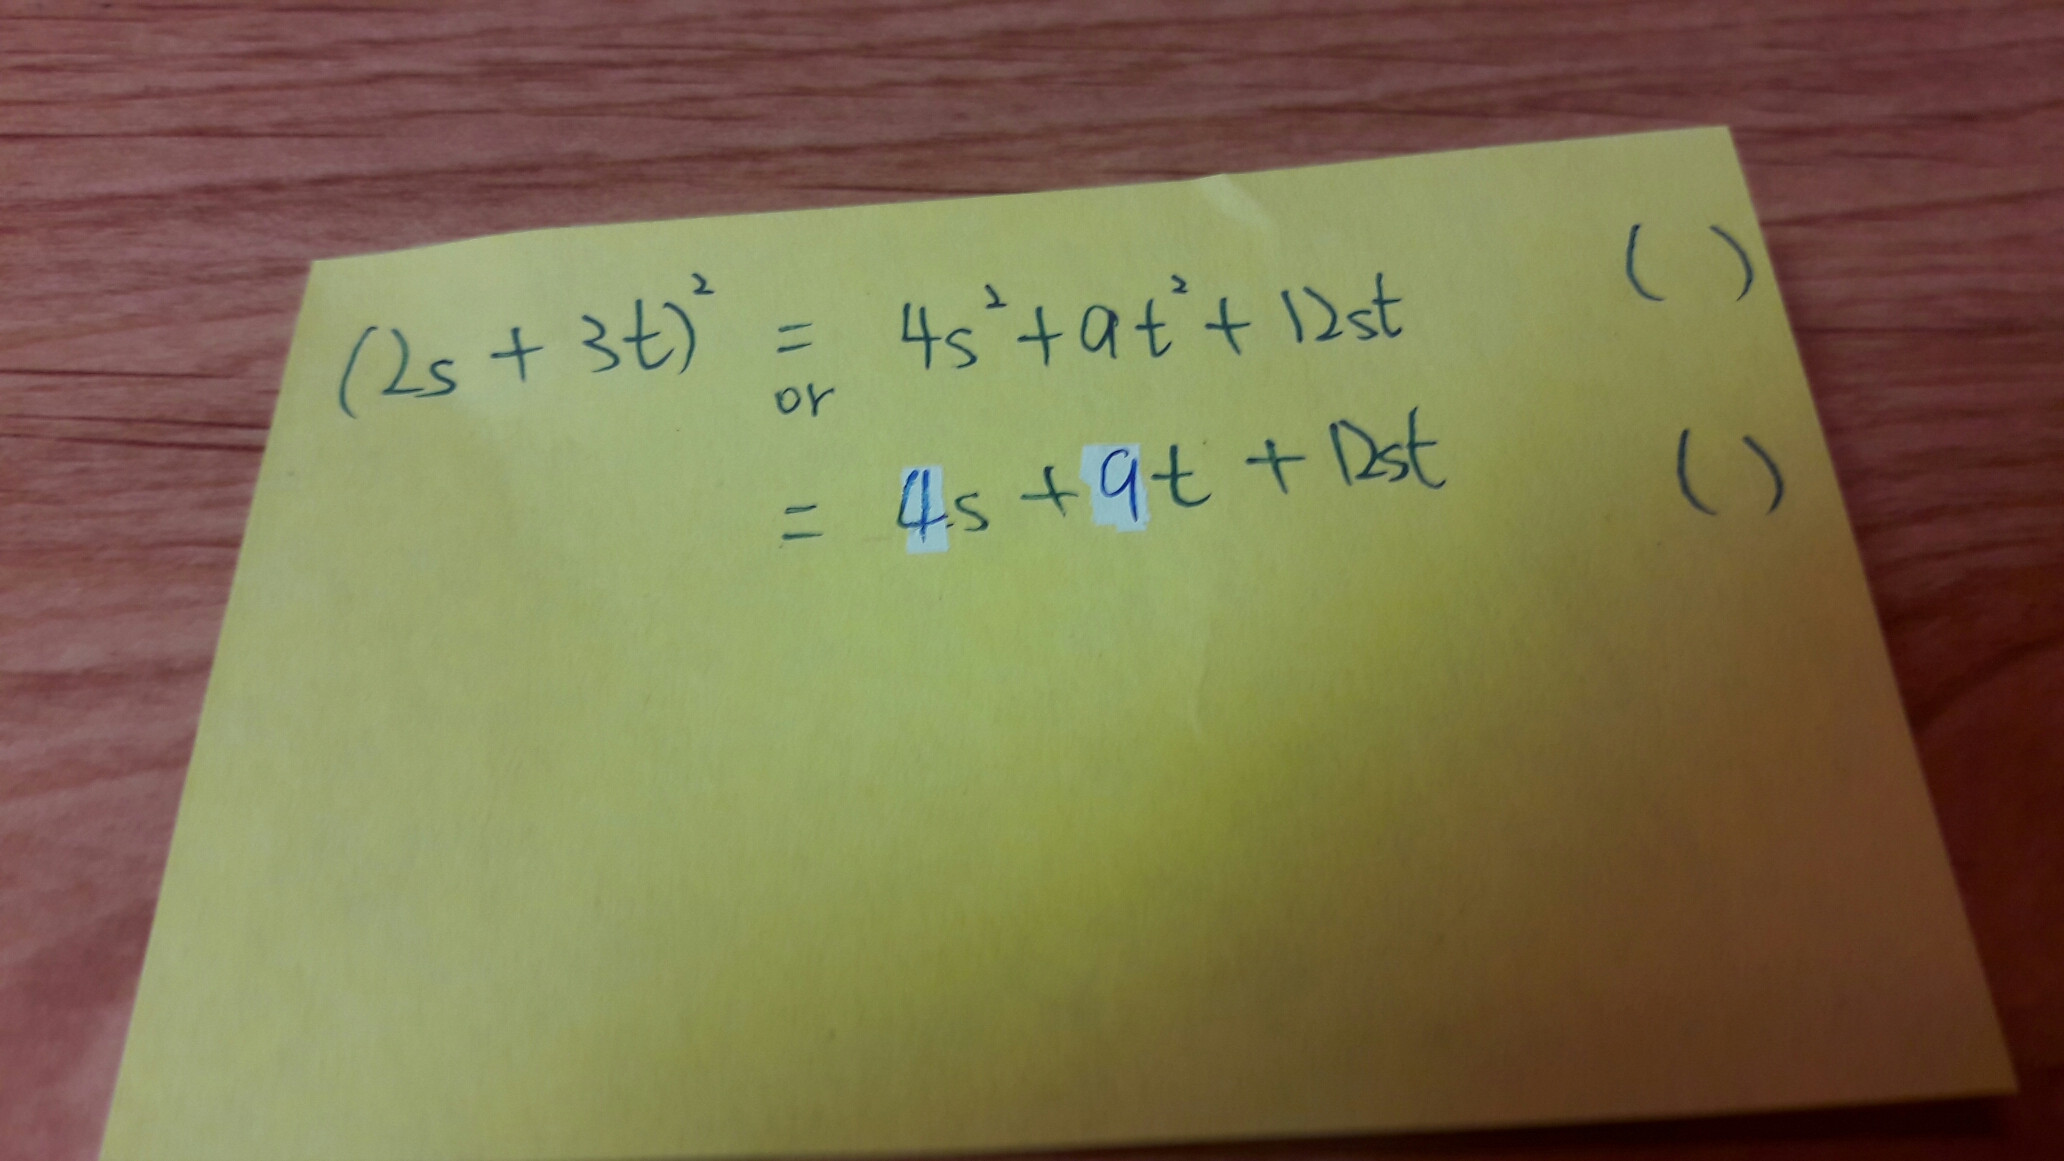 (2s + 3t)² = 4s² + 9t² + 12st ( )
or
= 4s + 9t + 12st ( )